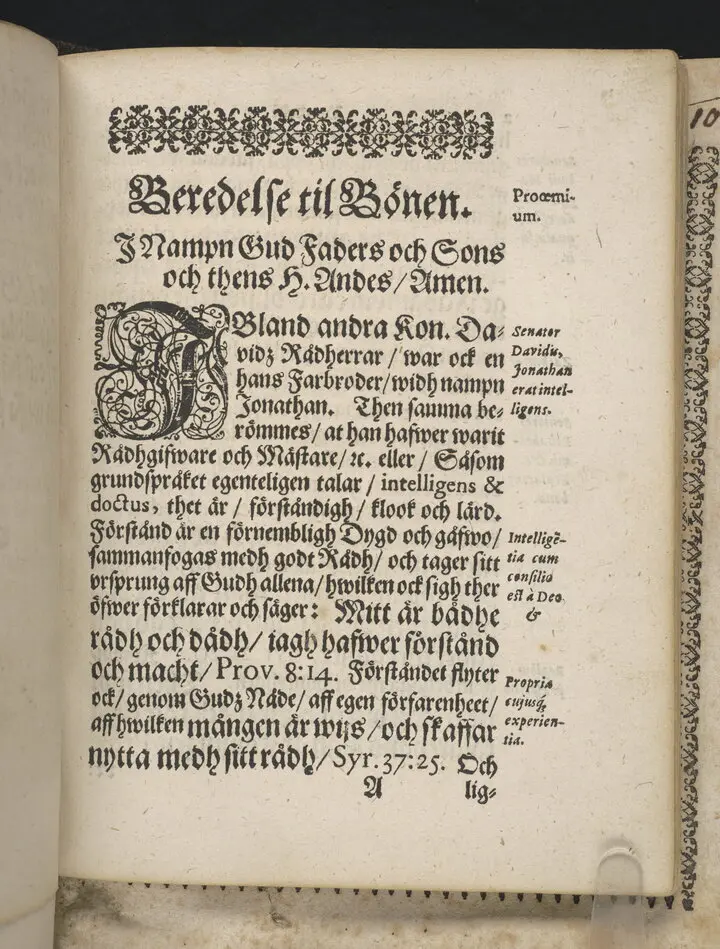 Beredelse til Bönen.
Procemi-
um.
J Nampn Gud Faders och Sons
och thens H. Andes/Amen.
IBland andra Kon. Da-
vidz Rådherrar/war ock en
hans Farbroder/widh nampn
Jonathan. Then samma be-
römmes/at han hafwer warit
Rådhgifware och Mästare/ꝛc. eller/Såsom
grundspråket egenteligen talar/intelligens &
doctus, thet är/förståndigh/klook och lärd.
Senator
Davidis,
Jonathan
erat intel-
ligens.
Förstånd är en förnembligh Dygd och gåfwo/
sammanfogas medh godt Rådh/och tager sitt
vrsprung aff Gudh allena/hwilken ock sigh ther
öfwer förklarar och säger: Mitt är bådhe
rådh och dådh/iagh hafwer förstånd
och macht/Prov. 8:14. Förståndet flyter
ock/genom Gudz Nåde/aff egen förfarenheet/
aff hwilken mången är wijs/och skaffar
nytta medh sitt rådh/Syr. 37:25. Och
Intelligē-
tia cum
consilio
est à Deo
&
Propria
cujusq́;
experien-
tia.
A
lig-
10